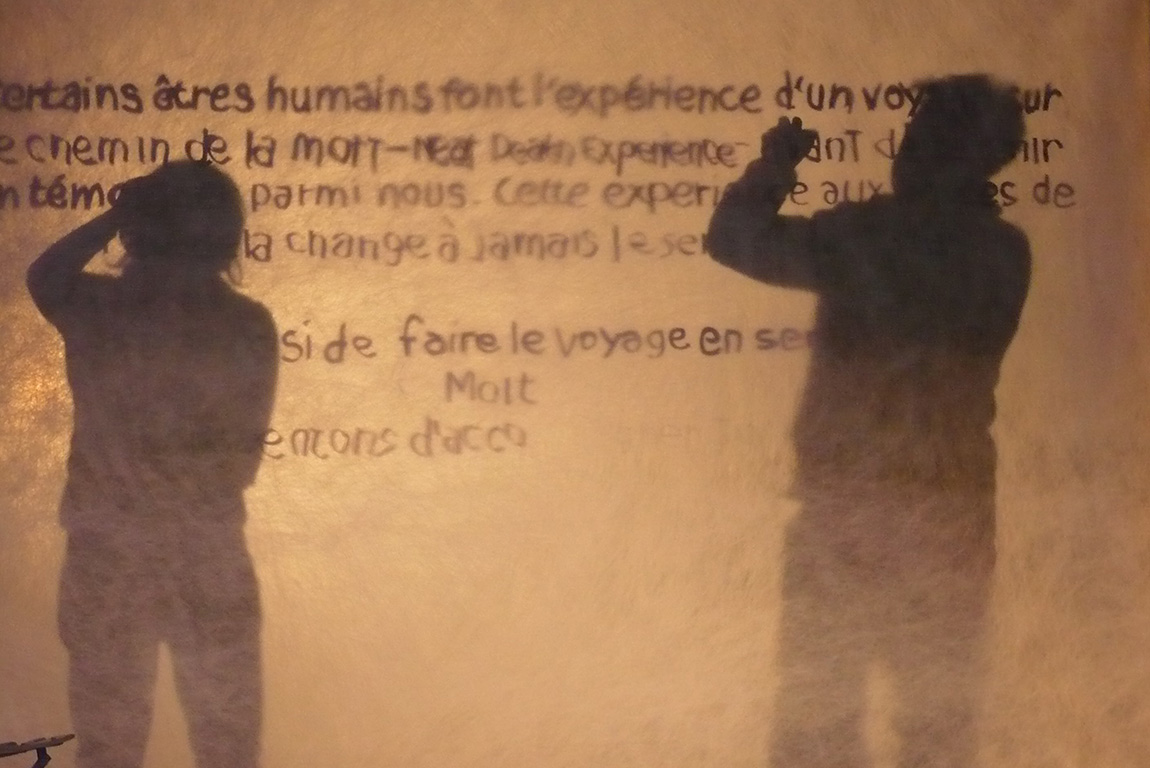 ertains âtres humains font l'expérience d'un voy sur
e chemin de la mort-Near Death Experience- ant d nir
n témo parmi nous. Cette experi e aux es de
la change à jamais le sen
si de faire le voyage en sen
Mort
entons d'acco